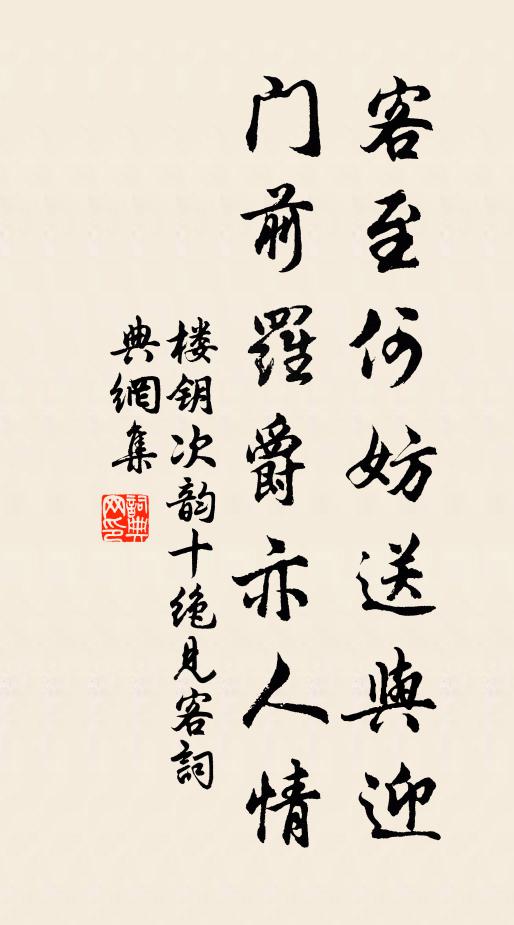 客至何妨送與迎
门前羅爵亦人情
楼钥次韵十绝见客詞
典網集
詞典网印